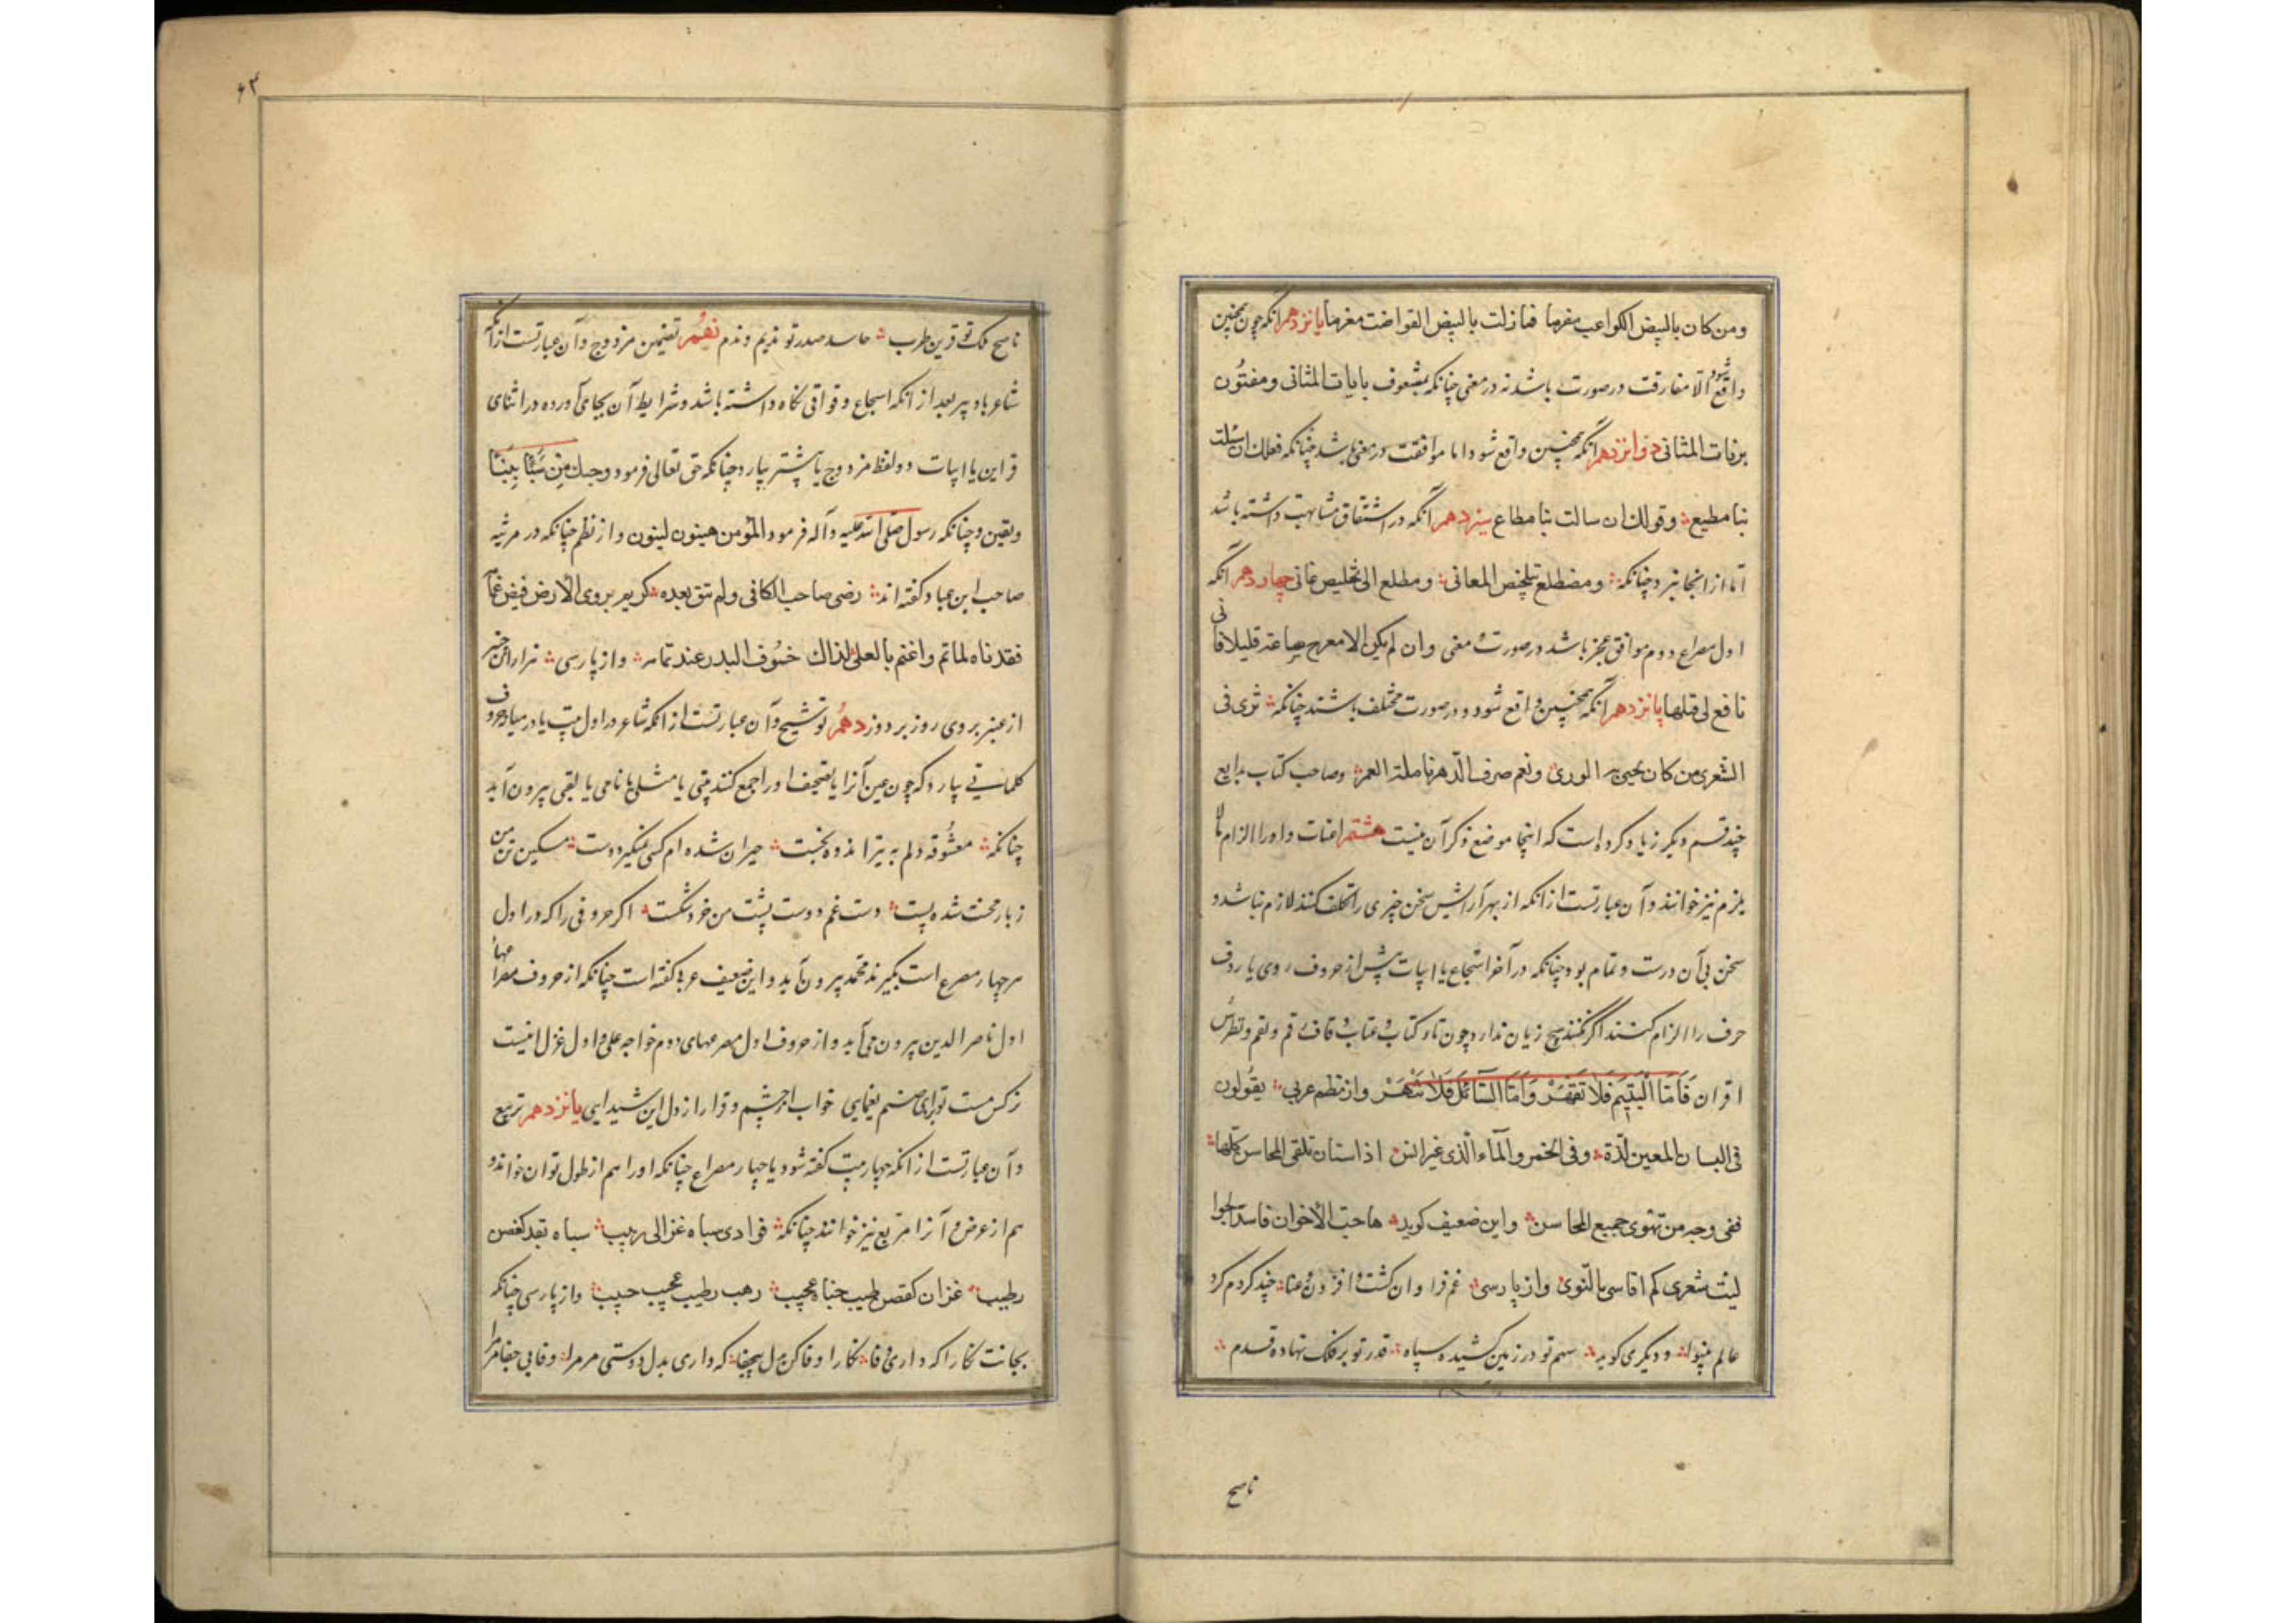 ومن كان بالبيض الكواعب مغرما فمازلت بالبيض القواضب مغرما يانزدهم آنكه چون همچنين
واقع شود الا مفارقت در صورت باشد نه در معنى چنانكه بمشعوف بايات المثانى ومفتون
برنات المثانى دوانزدهم آنكه همچنين واقع شود اما موافقت در معنى باشد چنانكه فعلك ان سئلت
بنا مطيع وقولك ان سالت بنا مطاع سيزدهم آنكه در اشتقاق مشابهت داشته باشد
اما از انجا نبرد چنانكه ومضطلع بتلخيص المعانى ومطلع الى تخليص عانى چهاردهم آنكه
اول مصراع دوم موافق عجز باشد در صورت و معنى وان لم يكن الا معرج ساعة قليلا فانى
نافع لى قلها پانزدهم آنكه همچنين واقع شود و در صورت مختلف باشند چنانكه ثوى فى
الثرى من كان يحيى به الورى ونعم صرف الدهر نامله العمر وصاحب كتاب بدايع
چند قسم ديكر زياد كرده است كه اينجا موضع ذكر آن نيست هشتم اعنات واو را الزام مالا
يلزم نيز خوانند و آن عبارتست از آنكه از بهر آرايش سخن چيزى را تكلف كنند لازم نباشد و
سخن بى آن درست و تمام بود چنانكه در آخر اسجاع يا ابيات پيش از حروف روى يا ردف
حرف را الزام كنند اگر نكنند هيچ زيان ندارد چون تاء كتاب و عتاب و قاف قم و نقم ونظيرش
اقران فَاَمَّا الْيَتِيمَ فَلا تَقْهَرْ وَاَمَّا السَّائِلَ فَلا تَنْهَرْ واز نظم عربى يقولون
فى البستان للعين لذة وفى الخمر والماء الذى غير اسن اذا شئت ان تلقى المحاسن كلها
ففى وجه من تهوى جميع المحاسن واين ضعيف كويد هاجت الاخوان فاستد الجوا
ليت شعرى كم اقاسى بالنوى واز پارسى غم فراوان گشت و افزون عنا چند كردم كرد
عالم بينوا و ديكرى كويد سهم تو در زمين كشيده سپاه قدر تو بر فلك نهاده قدم
ناصح
۶۳
ناصح ملك تو قرين طرب حاسد صدر تو نديم وندم نهم تضمين مزدوج و آن عبارتست از آنكه
شاعر يا دبير بعد از آنكه اسجاع و قوافى نگاه داشته باشد و شرايط آن بجاى آورده در اثناى
قراين يا ابيات دو لفظ مزدوج يا بيشتر بيارد چنانكه حق تعالى فرمود وجئتك من سبأ بنبأ
ويقين و چنانكه رسول صلى الله عليه وآله فرمود المؤمن هينون لينون واز نظم چنانكه در مرثيه
صاحب ابن عباد كفته اند مضى صاحب الكافى ولم يبق بعده كريم يروى الارض فيض غمامه
فقدناه لما تم واغتم بالعلى كذاك خسوف البدر عند تمامه واز پارسى
از عنبر بر وى روز بر دوز دهم توشيح و آن عبارتست از آنكه شاعر در اول بيت يا در ميان حروف
كلماتى بيارد كه چون عين آنرا يا تصحيف او را جمع كنند بيتى يا مثلى يا نامى يا لقبى بيرون آيد
چنانكه معشوقه دلم به تير اندوه بخست حيران شده ام كسى نميگيرد دست مسكين تن من
ز بار محنت شده پست دست غم دوست پشت من خرد شكست اكر حروفى را كه در اول
هر چهار مصرع است بگيرند محمد بيرون آيد و اين ضعيف عربى كفته است چنانكه از حروف مصراعهاى
اول ناصر الدين بيرون مى آيد و از حروف اول مصرعهاى دوم خواجه على و اول غزل اينست
نركس مست تو اى صنم يغمايى خواب از چشم و قرار از دل اين شيدايى يانزدهم تربيع
و آن عبارتست از آنكه چهار بيت كفته شود يا چهار مصراع چنانكه او را هم از طول توان خواند و
هم از عرض و آنرا مربع نيز خوانند چنانكه فوادى سباه غزالى ربيب سباه بقد كغصن
رطيب غزال كغصن رطيب جناه عجيب ربيب رطيب عجيب حبيب واز پارسى چنانكه
بجانت نگارا كه دارى وفا نگارا وفا كن بدل بيجفا كه دارى بدل دوستى مر مرا وفا بى جفا مر مرا